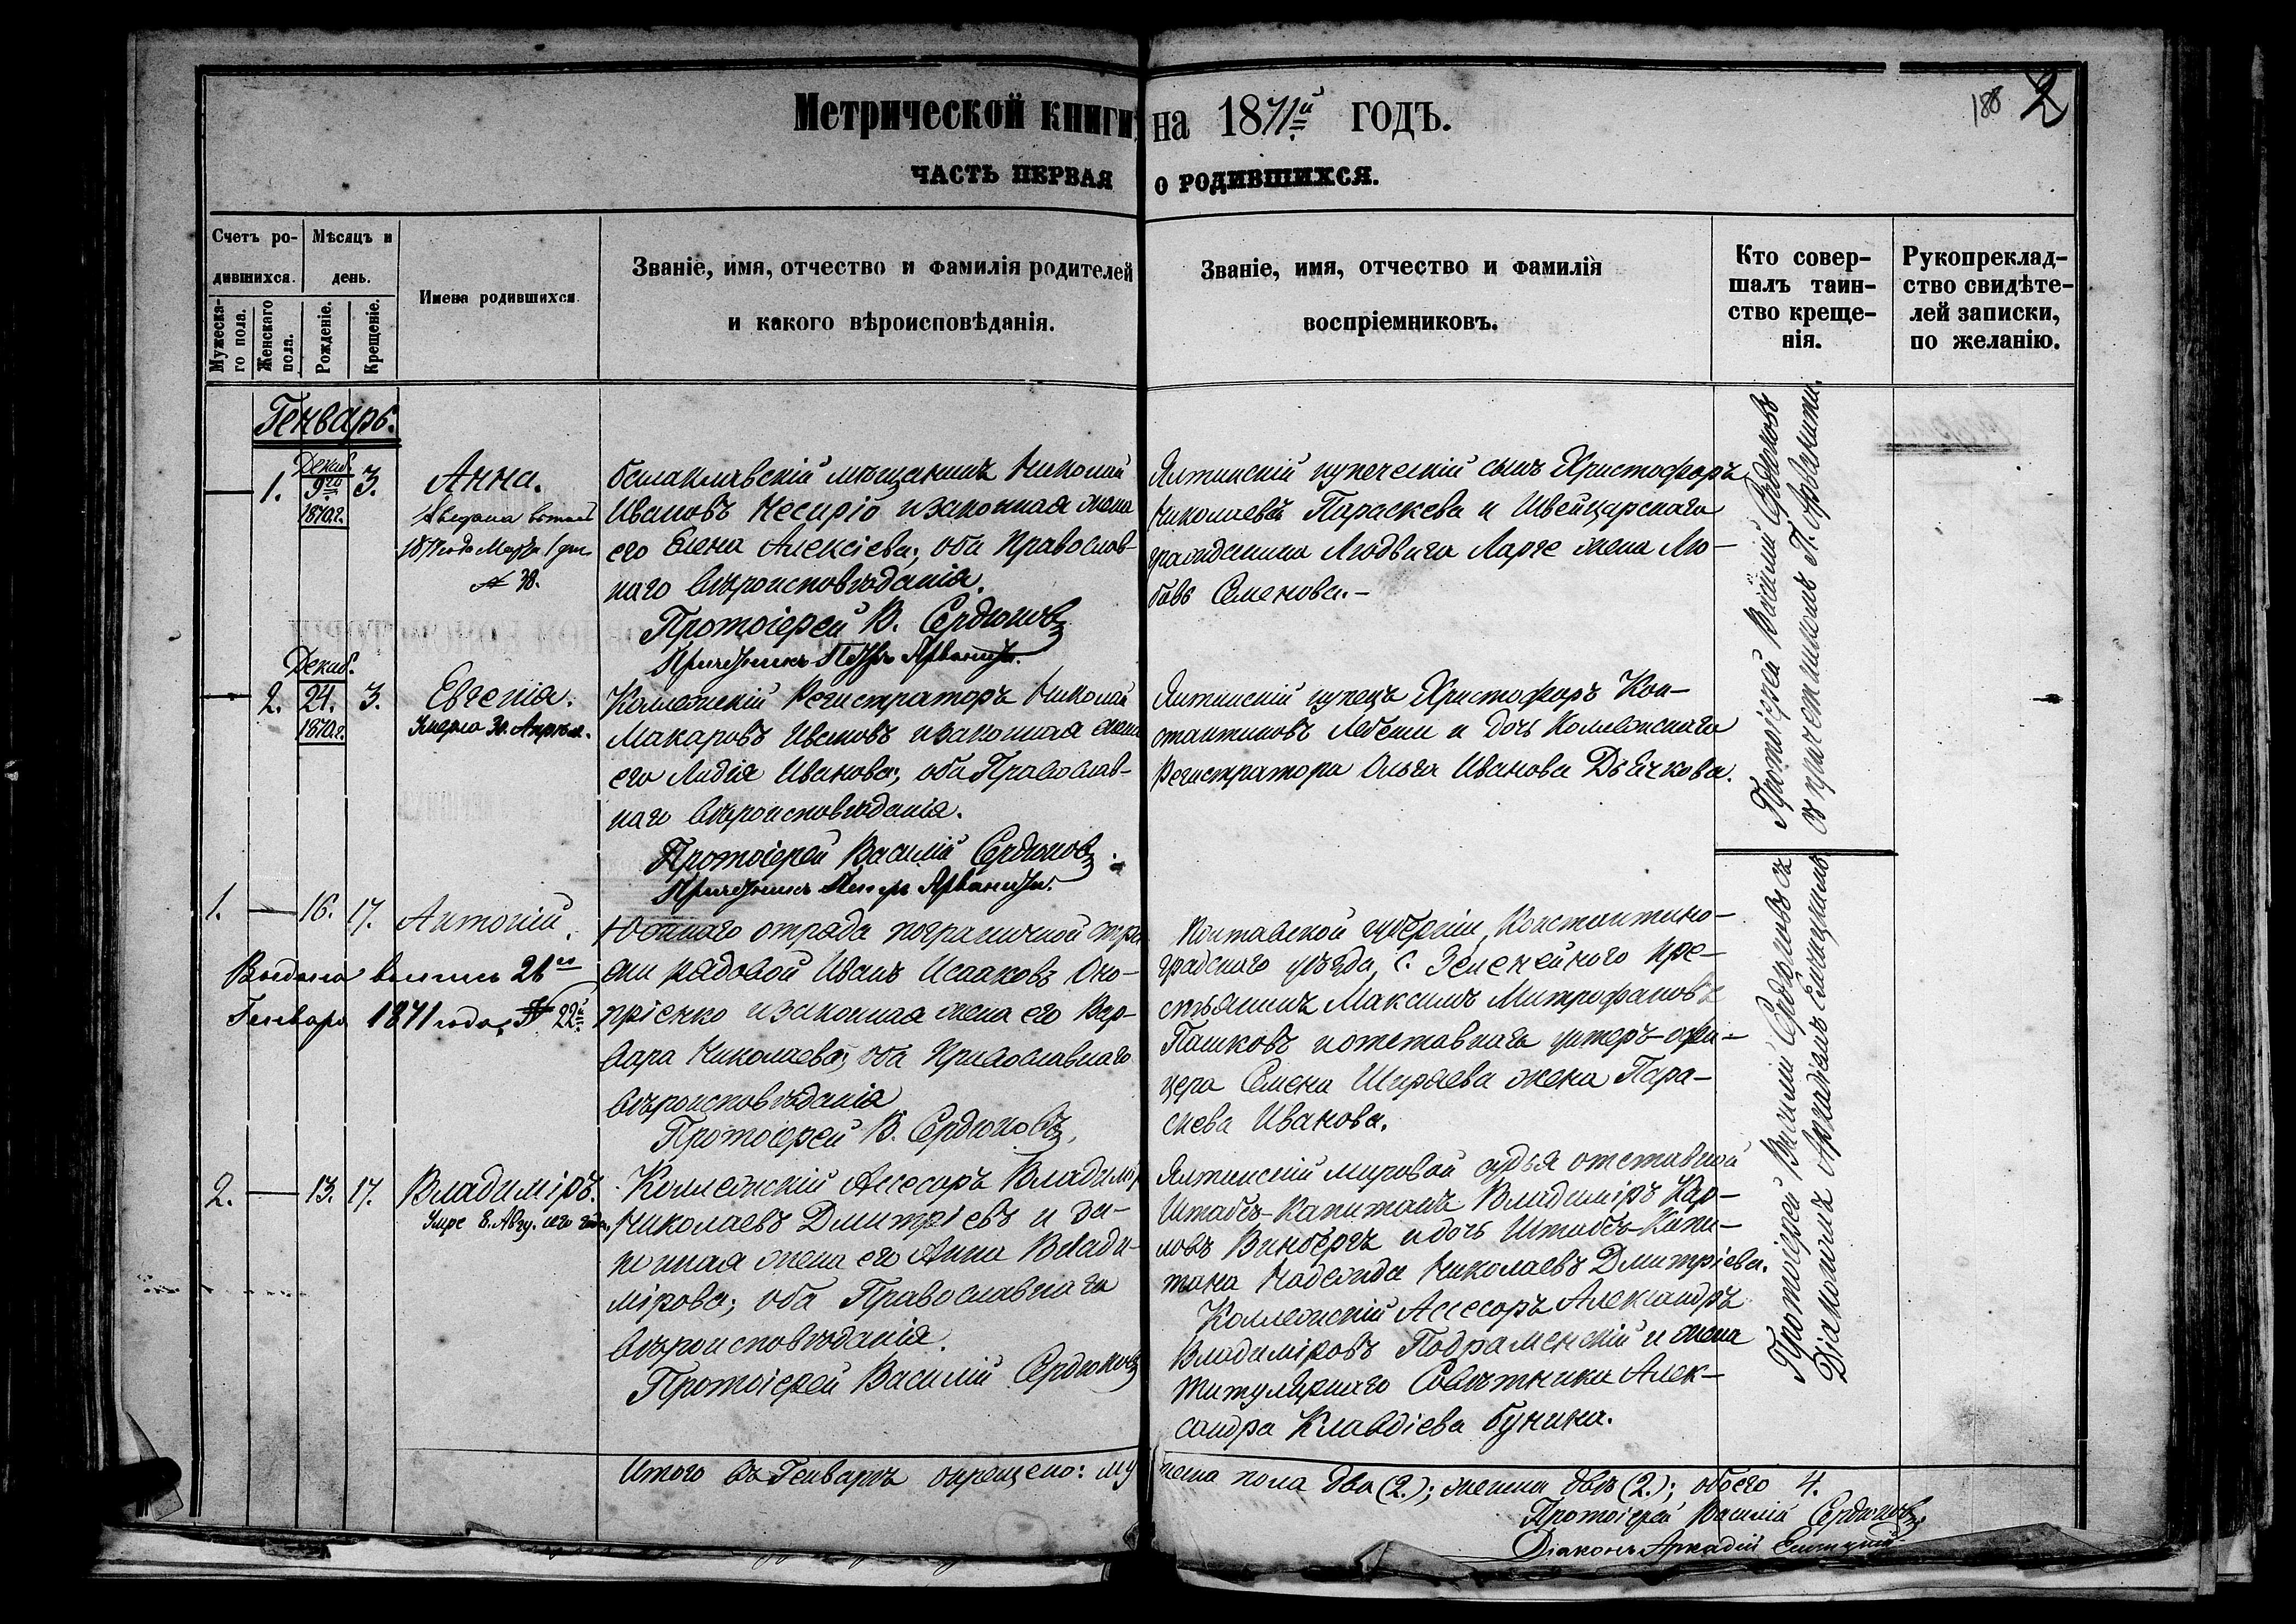 Метрической книги, на 1871й годъ.
188 2
ЧАСТЬ ПЕРВАЯ о родившихся.
Счетъ ро-
дившихся.
Мужеска-
го пола.
Женскаго
пола.
Мѣсяцъ и
день.
Рожденіе.
Крещеніе.
Имена родившихся.
Званіе, имя, отчество и фамилія родителей
и какого вѣроисповѣданія.
Званіе, имя, отчество и фамилія
воспріемниковъ.
Кто совер-
шалъ таин-
ство креще-
нія.
Рукопреклад-
ство свидѣте-
лей записки,
по желанію.
Генварь.
— 1. Декаб. 9го 1870.г. 3.
Анна.
1871 года Марта 1 дня
№ 38.
балаклавскій мѣщанинъ Николай
Ивановъ Кесиріо и законная жена
его Елена Алексіева; оба Православ-
наго Вѣроисповѣданія.
Протоіерей В. Сердюковъ
Причетникъ Петръ Арванити.
Ялтинскій купеческій сынъ Христофоръ
Николаевъ Параскева и Швейцарскаго
гражданина Людвига Ларге жена Лю-
бовь Семенова.—
Протоіерей Василій Сердюковъ
съ причетникомъ П. Арванити.
— 2. Декаб. 24. 1870.г. 3.
Евгенія.
Умерла 30. Апрѣля.
Коллежскій Регистраторъ Николай
Макаровъ Ивановъ и законная жена
его Лидія Иванова; оба Православ-
наго Вѣроисповѣданія.
Протоіерей Василій Сердюковъ.
Причетникъ Петръ Арванити.
Ялтинскій купецъ Христофоръ Кон-
стантиновъ и дочь Коллежскаго
Регистратора Ольга Иванова Дьячкова.
1. — 16. 17.
Антоній.
Выдана выпись 26го
Генваря 1871 года, № 22й
Южнаго отряда пограничной стра
жи рядовой Иванъ Исааковъ Оно-
пріенко и законная жена его Вар-
вара Николаева; оба Православнаго
Вѣроисповѣданія
Протоіерей В. Сердюковъ,
Полтавской губерніи, Константино-
градскаго уѣзда, с. кре-
стьянинъ Максимъ Митрофановъ
Пашковъ и отставнаго унтеръ-офи-
цера Семена Ширяева жена Пара-
скева Иванова.
Протоіерей Василій Сердюковъ съ
Діакономъ Аркадіемъ
2. — 13. 17.
Владиміръ.
Умре 8. Авгу. сего года.
Коллежскій Ассесоръ Владимір
Николаевъ Дмитріевъ и за-
конная жена его Анна Влади-
мірова; оба Православнаго
Вѣроисповѣданія.
Протоіерей Василій Сердюковъ
Ялтинскій мировой судья отставной
Штабсъ-Капитанъ Владиміръ Кар-
ловъ Винбергъ и дочь Штабсъ-Капи-
тана Надежда Николаевъ Дмитріева.
Коллежскій Ассесоръ Александръ
Владиміровъ Подраменскій и жена
Титулярнаго Совѣтника Алек-
сандра Клавдіева Бунина.
Итого въ Генварѣ окрещено: му жеска пола два (2.); женска двѣ (2.); обоего 4.
Протоіерей Василій Сердюковъ,
Діаконъ Аркадій